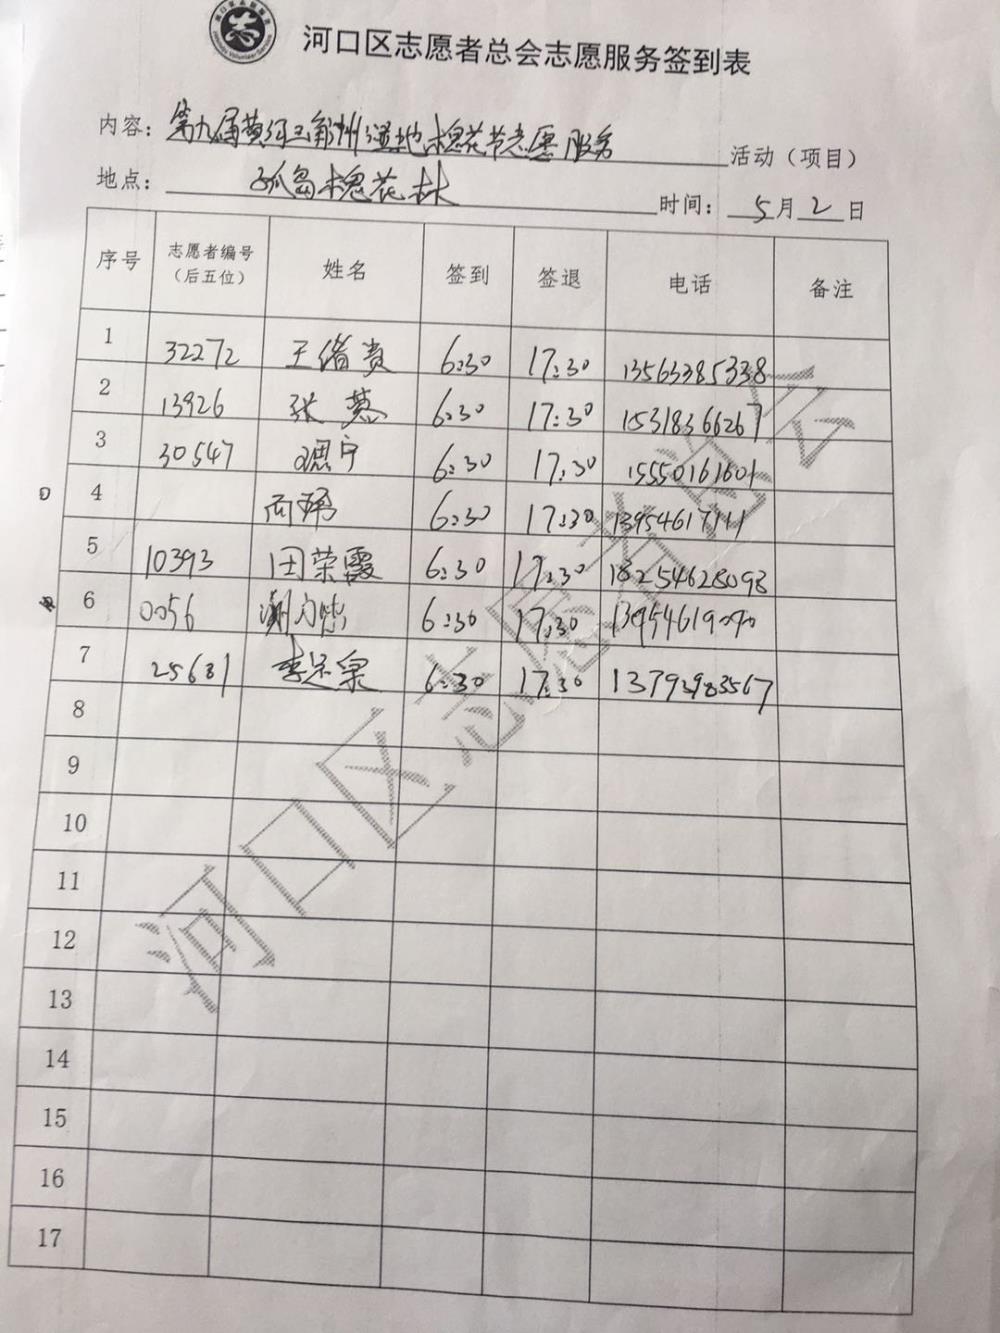 河口区志愿者总会志愿服务签到表
内容：第九届黄河三角洲湿地槐花节志愿服务活动（项目）
地点：孤岛槐花林 时间：5月2日
序号 志愿者编号（后五位） 姓名 签到 签退 电话 备注
1 32272 王绪贵 6:30 17:30 13563385338
2 13926 张慧 6:30 17:30 15318366267
3 30547 6:30 17:30 15550161601
4 6:30 17:30
5 10393 田荣霞 6:30 17:30 18254628098
6 0056 6:30 17:30 13954619090
7 25681 6:30 17:30 13793983567
8
9
10
11
12
13
14
15
16
17
河口区志愿者总会